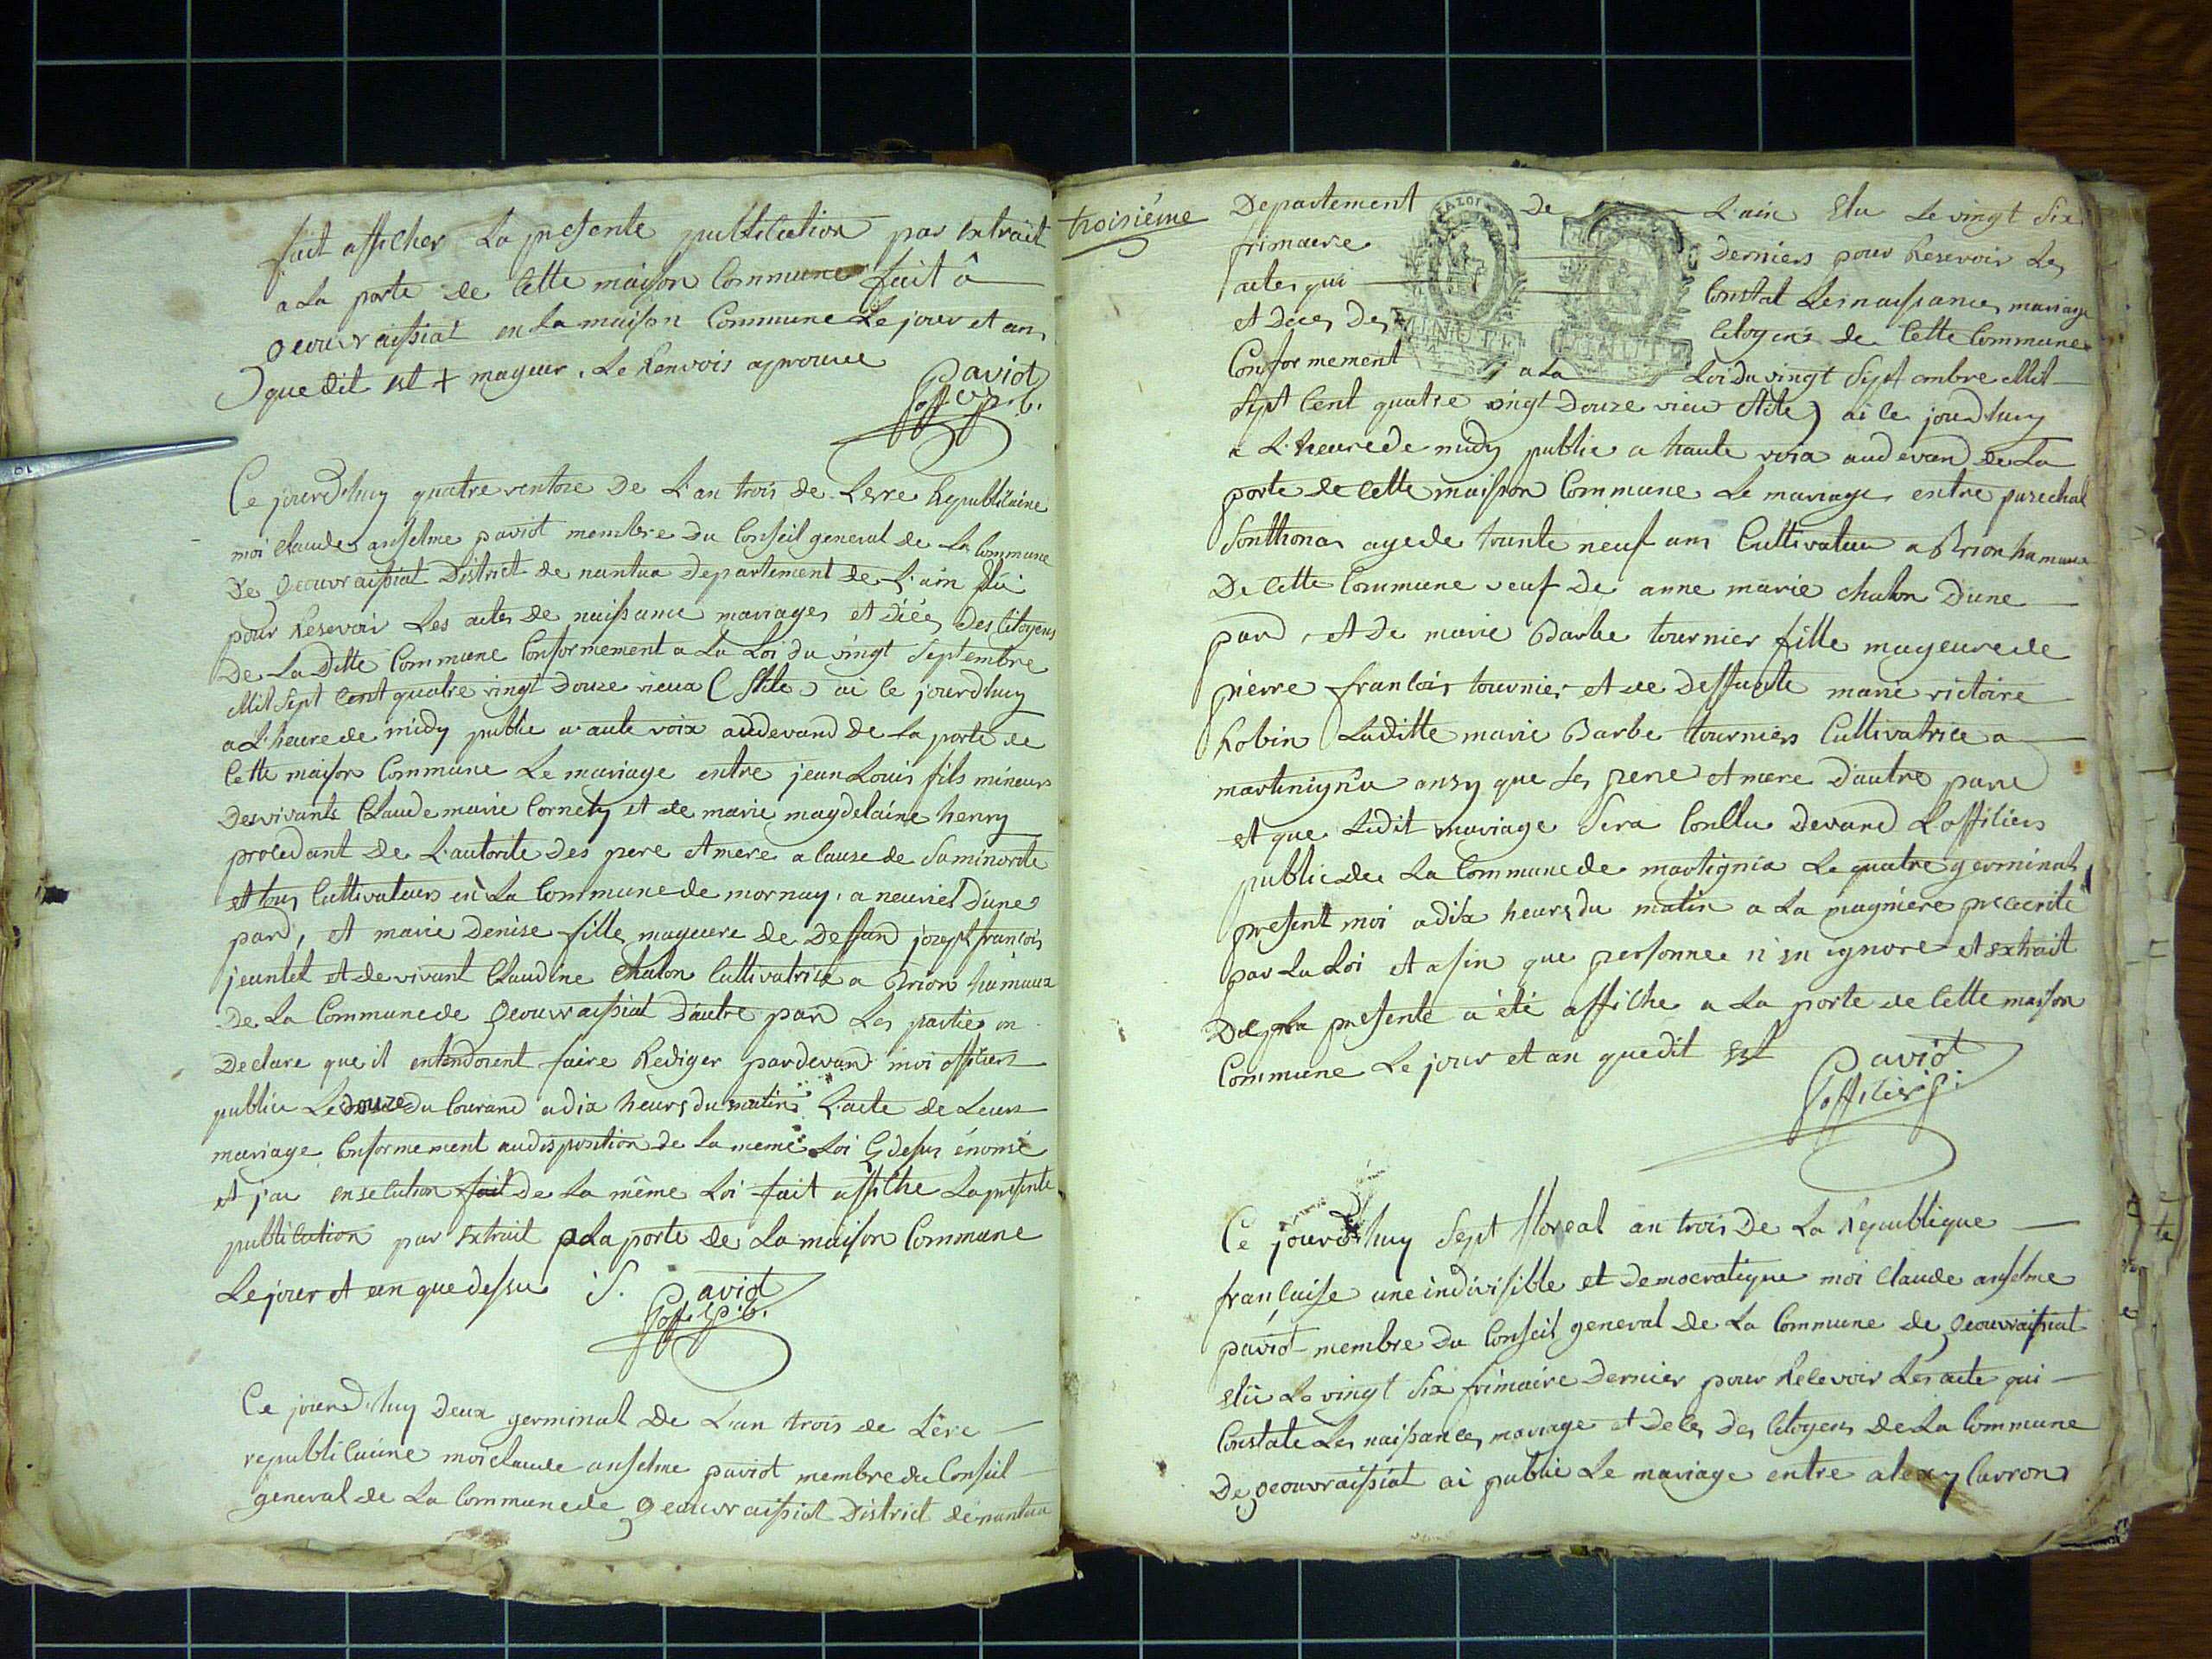 fait afficher La presente publication par extrait
a La porte de Cette maison Commune fait â
geouvraissiat en La maison Commune Le jour et an
que dit est + mayeur. Le Renvois aprouvé
Paviot
off. p. b.
Ce jourd'huy quatre ventose De L'an trois de Lerre Republicaine
moi Claude anselme paviot membre Du Conseil general de La Commune
De geouvraissiat District de nantua Departement de L'ain Elu
pour Resevoir Les actes de naissance mariages et Déces Des Citoyens
De La Ditte Commune Conformement a La Loi du vingt Septembre
Mil Sept Cent quatre vingt Douze vieux (Stile) ai ce jourdhuy
a L'heure de midy publie a aute voix audevand de La porte de
Cette maison Commune Le mariage entre jean Louis fils mineurs
Des vivants Claude marie Cornety et de marie magdelaine henry
procedant de L'autorite Des pere et mere a Cause de Saminorite
et tous Cultivateurs en La Commune de mornay, a D'une
pard, et marie Denise fille mayeure de Deffand jozept francois
jeantet et de vivant Claudine Chalon Cultivatrice a Brion hamaux
De La Commune de geouvraissiat D'autre pard Les partie on
Declare que il entendoient faire Rediger pardevand moi officiers
public Le douze Du Courand a dix heurs du matin L'acte de Leurs
mariage Conformement audisposition de La meme Loi Cydesus énonsé
et j'ai enseCution fait De La même Loi fait affiche La presente
publication par extrait a La porte de La maison Commune
Le jour et an que dessu S. Paviot
off. p. b.
Ce jourd'huy Deux germinal De L'an trois de L'ere
republicaine moi claude anselme paviot membre du Conseil
general de La Commune de geouvraissiat District de nantua
troisiéme
Departement De L'ain Elu Le vingt Six
frimaire Derniers pour Resevoir Les
actes qui Constat Les naissances mariage
et Déces Des Citoyens de Cette Commune
Conformement a La Loi Du vingt Septembre Mil
MINUTE MINUTE
Sept Cent quatre vingt Douze vieu Stile) ai ce jourdhuy
a L'heure de midy publie a haute voix audevand de La
porte de Cette maison Commune Le mariage entre
Sonthonax age de trante neuf ans Cultivateur a Brion hamaux
De Cette Commune veuf De anne marie chalon D'une
pard, et De marie Barbe tournier fille mayeure de
pierre francois tournier et de Deffunte marie victoire
Robin Laditte marie Barbe tourniers Cultivatrice a
martinignia ansy que Ses pere et mere D'autre pard
et que Ledit mariage Sera Conclu Devand L'officiers
public de La Commune de martignia Le quatre germinal
present moi a dix heurs du matin a La magniere prescrite
par La Loi et afin que personnee n'en ignore et Extrait
De La presente a été affiche a La porte de Cette maison
Commune Le jour et an que dit Est Paviot
officier p:
Ce jourd'huy Sept floreal an trois De La Republique
française une indivisible et Democratique moi Claude anselme
paviot membre Du Conseil general de La Commune de geouvraissiat
elu Le vingt Six frimaire Dernier pour Recevoir Les acte qui
Constate Les naissances mariage et Deces des Citoyens De La Commune
De geouvraissiat ai publié Le mariage entre alexy Carron